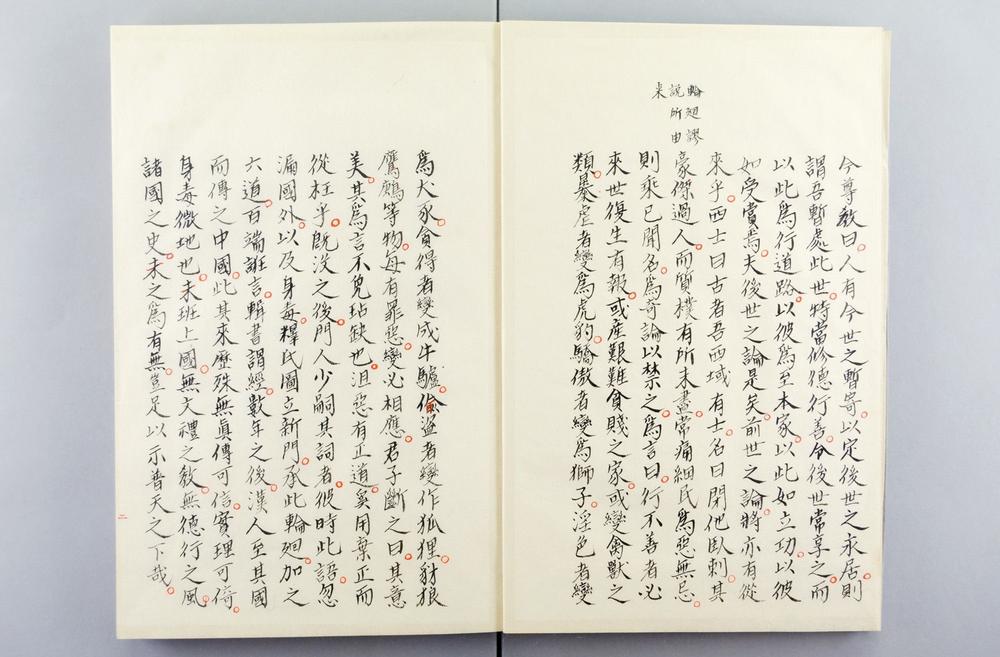 今尊教曰人有今世之暫寄以定後世之永居則
謂吾暫處此世特當修德行善令後世常享之而
以此爲行道路以彼爲至本家以此如立功以彼
如受賞焉夫後世之論是矣前世之論將亦有從
來乎西士曰古者吾西域有士名曰閉他臥剌其
豪傑過人而質樸有所未盡常痛細民爲惡無忌
則乘已聞名爲奇論以禁之爲言曰行不善者必
來世復生有報或產艱難貧賤之家或變禽獸之
類暴虐者變爲虎豹驕傲者變爲獅子淫色者變
輪廻謬
說所由
来
爲犬豕貪得者變成牛驢偷盜者變作狐狸豺狼
鷹鷂等物每有罪惡變必相應君子斷之曰其意
美其爲言不免玷缺也沮惡有正道奚用棄正而
從枉乎旣没之後門人少嗣其詞者彼時此語忽
漏國外以及身毒釋氏圖立新門承此輪廻加之
六道百端誑言輯書謂經數年之後漢人至其國
而傳之中國此其來歷殊無眞傳可信實理可倚
身毒微地也未班上國無文禮之教無德行之風
諸國之史未之爲有無豈足以示普天之下哉
二